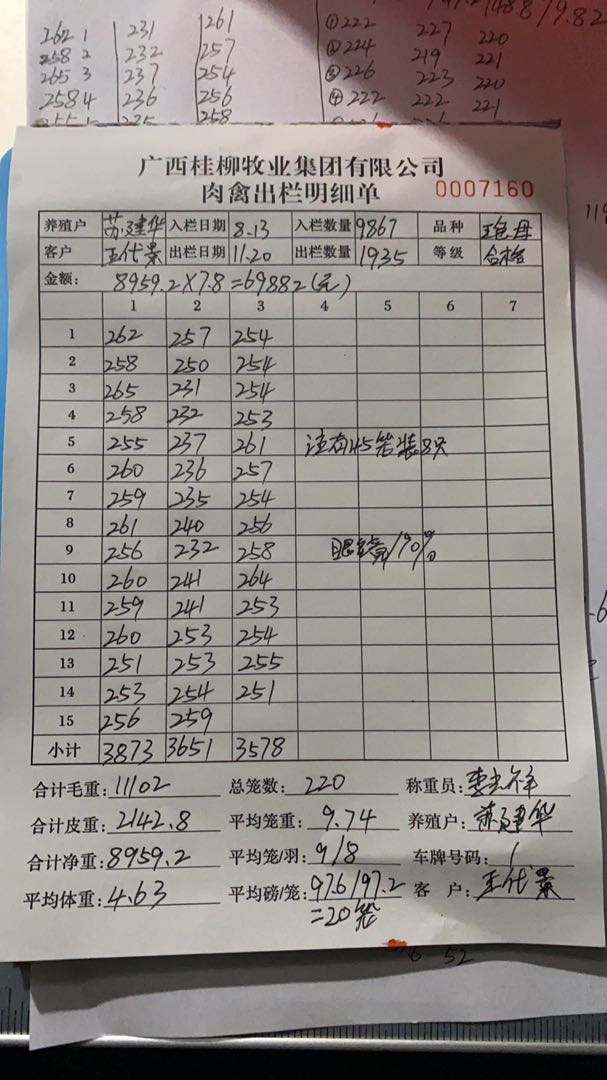 262 1 231 261
258 2 232 257
265 3 237 254
258 4 236 256
255 1 235 258
①222 227 220
②224 219 221
③226 223 220
④222 222 221
广西桂柳牧业集团有限公司
肉禽出栏明细单 0007160
养殖户 苏建华 入栏日期 8.13 入栏数量 9867 品种
客户 王代景 出栏日期 11.20 出栏数量 1935 等级 合格
金额: 8959.2×7.8=69882(元)
1 2 3 4 5 6 7
1 262 257 254
2 258 250 254
3 265 231 254
4 258 232 253
5 255 237 261 注有45笼装8只
6 260 236 257
7 259 235 254
8 261 240 256
9 256 232 258 90%
10 260 241 264
11 259 241 253
12 260 253 254
13 251 253 255
14 253 254 251
15 256 259
小计 3873 3651 3578
合计毛重: 11102 总笼数: 220 称重员:
合计皮重: 2142.8 平均笼重: 9.74 养殖户: 苏建华
合计净重: 8959.2 平均笼/羽: 9/8 车牌号码: /
平均体重: 4.63 平均磅/笼: 976/97.2 客 户: 王代景
=20笼
52